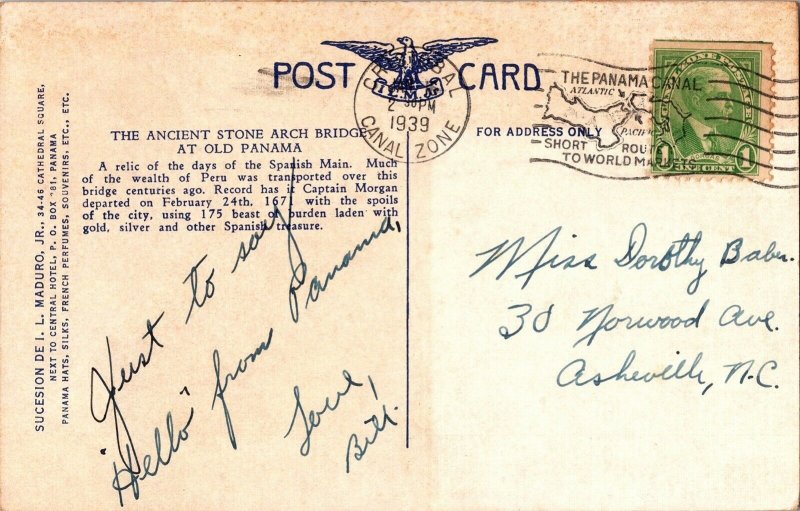 POST CARD
I.L.M. Jr.
CANAL ZONE
2 30 PM
1939
THE PANAMA CANAL
ATLANTIC
PACIFIC
SHORT ROUTE
TO WORLD MARKETS
CANAL ZONE POSTAGE
1 ONE CENT 1
THE ANCIENT STONE ARCH BRIDGE
AT OLD PANAMA
A relic of the days of the Spanish Main. Much
of the wealth of Peru was transported over this
bridge centuries ago. Record has it Captain Morgan
departed on February 24th, 1671 with the spoils
of the city, using 175 beast of burden laden with
gold, silver and other Spanish treasure.
FOR ADDRESS ONLY
SUCESION DE I. L. MADURO, JR., 34-46 CATHEDRAL SQUARE,
NEXT TO CENTRAL HOTEL, P. O. BOX 781, PANAMA
PANAMA HATS, SILKS, FRENCH PERFUMES, SOUVENIRS, ETC., ETC.
Just to say
"Hello" from Panama,
Love,
Bill.
Miss Dorothy Baber.
30 Norwood Ave.
Asheville, N.C.